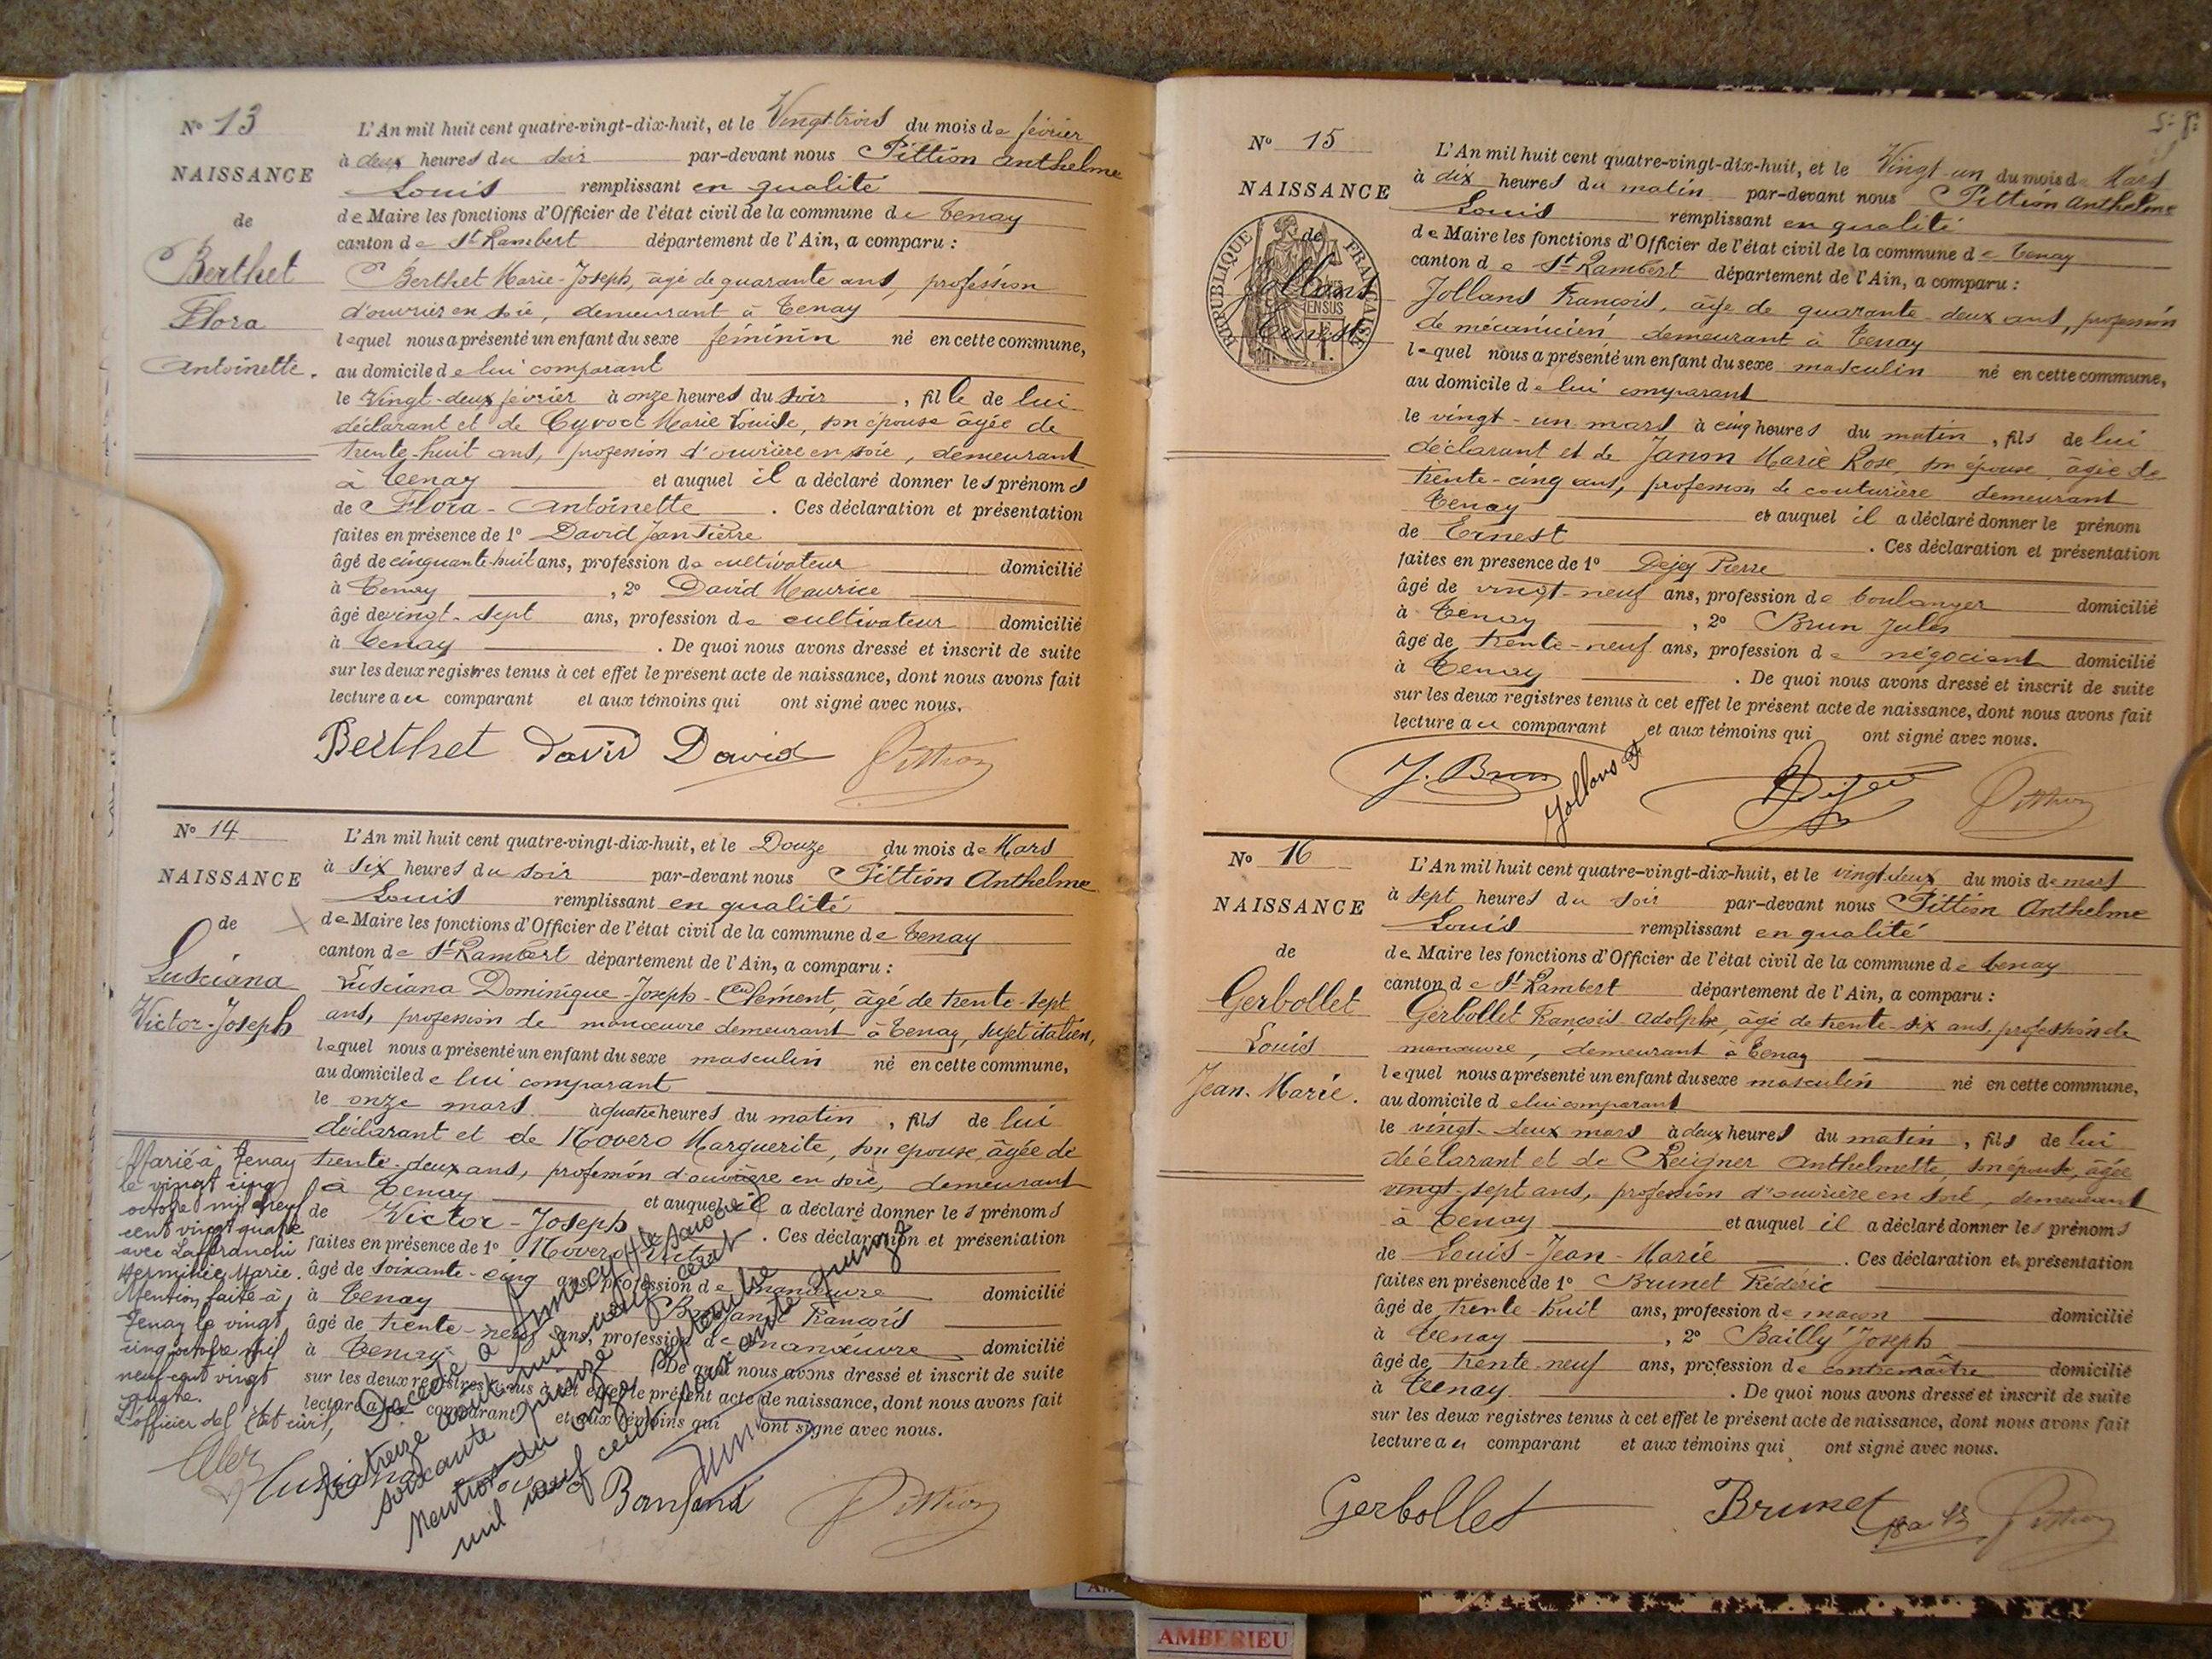 N° 13
NAISSANCE
de
Berthet
Flora
Antoinette.
L'An mil huit cent quatre-vingt-dix-huit, et le Vingt-trois du mois de février
à deux heures du soir par-devant nous Pittion Anthelme
Louis remplissant en qualité
de Maire les fonctions d'Officier de l'état civil de la commune de Tenay
canton de St Rambert département de l'Ain, a comparu :
Berthet Marie-Joseph, âgé de quarante ans, profession
d'ouvrier en soie, demeurant à Tenay
lequel nous a présenté un enfant du sexe féminin né en cette commune,
au domicile de lui comparant
le Vingt-deux février à onze heures du soir, fille de lui
déclarant et de Cyvoct Marie Louise, son épouse âgée de
trente-huit ans, profession d'ouvrière en soie, demeurant
à Tenay et auquel il a déclaré donner les prénoms
de Flora-Antoinette. Ces déclaration et présentation
faites en présence de 1° David Jean Pierre
âgé de cinquante-huit ans, profession de cultivateur domicilié
à Tenay, 2° David Maurice
âgé de vingt-sept ans, profession de cultivateur domicilié
à Tenay. De quoi nous avons dressé et inscrit de suite
sur les deux registres tenus à cet effet le présent acte de naissance, dont nous avons fait
lecture au comparant et aux témoins qui ont signé avec nous.
Berthet David David Pittion
N° 14
NAISSANCE
de
Lusciana
Victor-Joseph
L'An mil huit cent quatre-vingt-dix-huit, et le Douze du mois de Mars
à six heures du soir par-devant nous Pittion Anthelme
Louis remplissant en qualité
de Maire les fonctions d'Officier de l'état civil de la commune de Tenay
canton de St Rambert département de l'Ain, a comparu :
Lusciana Dominique-Joseph-Clément, âgé de trente-sept
ans, profession de manœuvre demeurant à Tenay, sujet italien,
lequel nous a présenté un enfant du sexe masculin né en cette commune,
au domicile de lui comparant
le onze mars à quatre heures du matin, fils de lui
déclarant et de Rovero Marguerite, son épouse, âgée de
trente-deux ans, profession d'ouvrière en soie, demeurant
à Tenay et auquel il a déclaré donner les prénoms
de Victor-Joseph. Ces déclaration et présentation
faites en présence de 1° Rovero
âgé de soixante-cinq ans, profession de manœuvre domicilié
à Tenay François
âgé de trente-neuf ans, profession de manœuvre domicilié
à Tenay De quoi nous avons dressé et inscrit de suite
sur les deux registres tenus à cet effet le présent acte de naissance, dont nous avons fait
lecture au comparant et aux témoins qui ont signé avec nous.
Marié à Tenay
le vingt cinq
octobre mil neuf
cent vingt quatre
avec Laffranchi
Herminie Marie.
Mention faite à
Tenay le vingt
cinq octobre mil
neuf cent vingt
quatre.
L'officier de l'état civil,
Décédé à Annecy (Hte Savoie)
le treize août mil neuf cent
soixante quinze
Mention du onze septembre
mil neuf cent soixante quinze
Pittion
N° 15
NAISSANCE
de
Jollans
Ernest
RÉPUBLIQUE FRANÇAISE
L'An mil huit cent quatre-vingt-dix-huit, et le Vingt-un du mois de Mars
à dix heures du matin par-devant nous Pittion Anthelme
Louis remplissant en qualité
de Maire les fonctions d'Officier de l'état civil de la commune de Tenay
canton de St Rambert département de l'Ain, a comparu :
Jollans François, âgé de quarante-deux ans, profession
de mécanicien demeurant à Tenay
lequel nous a présenté un enfant du sexe masculin né en cette commune,
au domicile de lui comparant
le vingt-un mars à cinq heures du matin, fils de lui
déclarant et de Janon Marie Rose, son épouse, âgée de
trente-cinq ans, profession de couturière demeurant
Tenay et auquel il a déclaré donner le prénom
de Ernest. Ces déclaration et présentation
faites en présence de 1° Dejey Pierre
âgé de vingt-neuf ans, profession de boulanger domicilié
à Tenay, 2° Brun Jules
âgé de trente-neuf ans, profession de négociant domicilié
à Tenay. De quoi nous avons dressé et inscrit de suite
sur les deux registres tenus à cet effet le présent acte de naissance, dont nous avons fait
lecture au comparant et aux témoins qui ont signé avec nous.
J. Brun Jollans F Pittion
N° 16
NAISSANCE
de
Gerbollet
Louis
Jean-Marie.
L'An mil huit cent quatre-vingt-dix-huit, et le vingt-deux du mois de mars
à sept heures du soir par-devant nous Pittion Anthelme
Louis remplissant en qualité
de Maire les fonctions d'Officier de l'état civil de la commune de Tenay
canton de St Rambert département de l'Ain, a comparu :
Gerbollet François-Adolphe, âgé de trente-six ans, profession de
manœuvre, demeurant à Tenay
lequel nous a présenté un enfant du sexe masculin né en cette commune,
au domicile de lui comparant
le vingt-deux mars à deux heures du matin, fils de lui
déclarant et de Reigner Anthelmette, son épouse, âgée
vingt-sept ans, profession d'ouvrière en soie, demeurant
à Tenay et auquel il a déclaré donner les prénoms
de Louis-Jean-Marie. Ces déclaration et présentation
faites en présence de 1° Brunet Frédéric
âgé de trente-huit ans, profession de maçon domicilié
à Tenay, 2° Bailly Joseph
âgé de trente-neuf ans, profession de contremaître domicilié
à Tenay. De quoi nous avons dressé et inscrit de suite
sur les deux registres tenus à cet effet le présent acte de naissance, dont nous avons fait
lecture au comparant et aux témoins qui ont signé avec nous.
Gerbollet Brunet Pittion
AMBERIEU